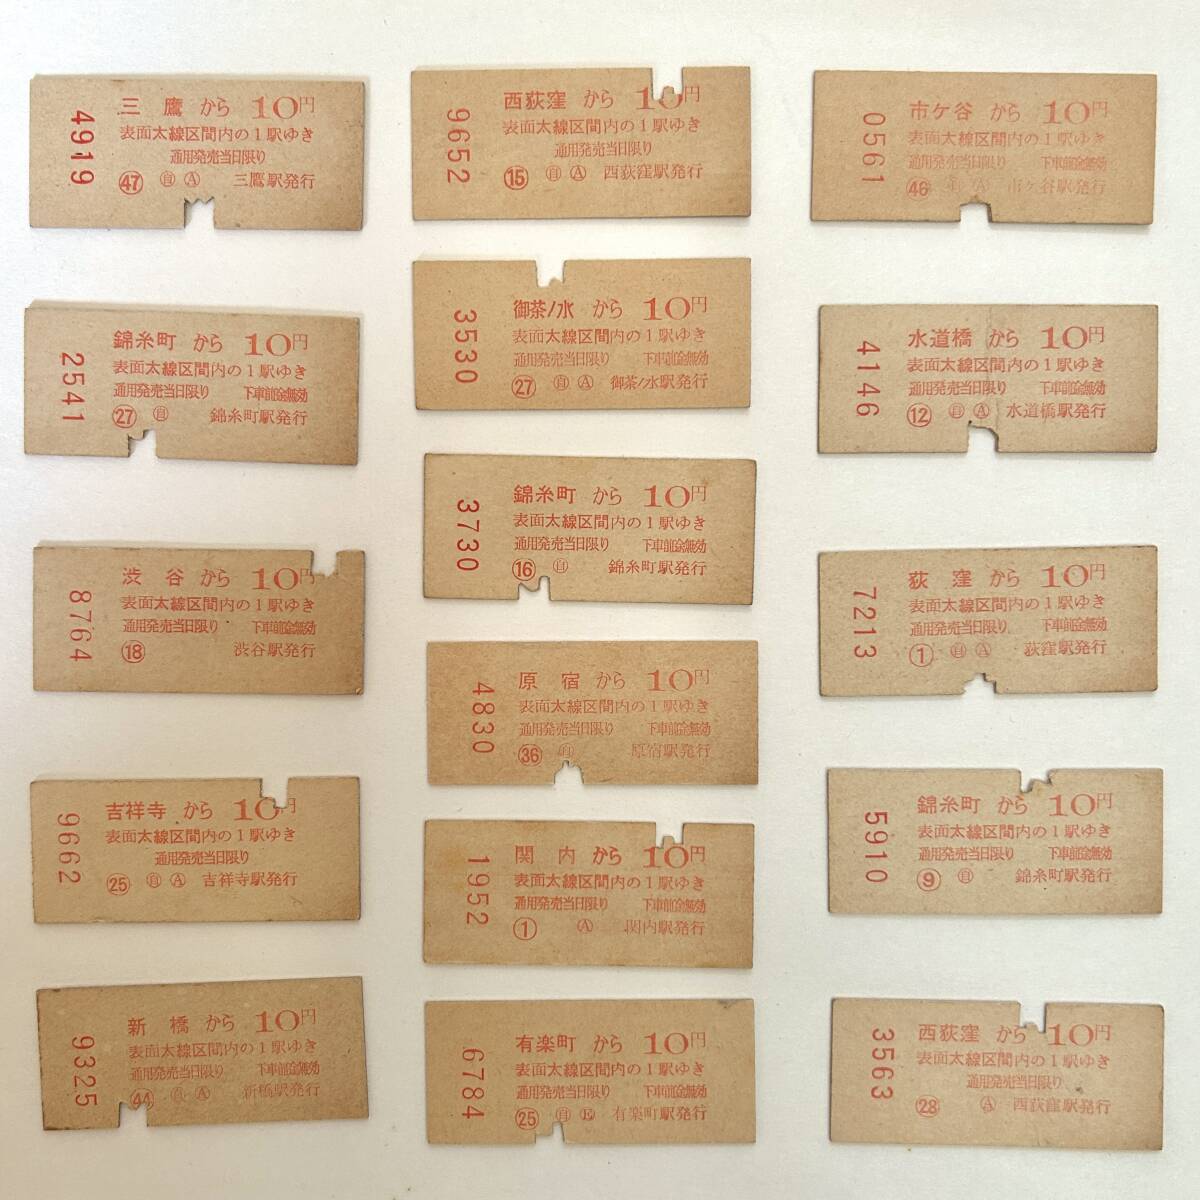 4919
三鷹から10円
表面太線区間内の1駅ゆき
通用発売当日限り
㊼ 自 Ⓐ 三鷹駅発行
2541
錦糸町から10円
表面太線区間内の1駅ゆき
通用発売当日限り 下車前途無効
㉗ 自 錦糸町駅発行
8764
渋谷から10円
表面太線区間内の1駅ゆき
通用発売当日限り 下車前途無効
⑱ 渋谷駅発行
9662
吉祥寺から10円
表面太線区間内の1駅ゆき
通用発売当日限り
㉕ 自 Ⓐ 吉祥寺駅発行
9325
新橋から10円
表面太線区間内の1駅ゆき
通用発売当日限り 下車前途無効
㊹ 自 Ⓐ 新橋駅発行
9652
西荻窪から10円
表面太線区間内の1駅ゆき
通用発売当日限り
⑮ 自 Ⓐ 西荻窪駅発行
3530
御茶ノ水から10円
表面太線区間内の1駅ゆき
通用発売当日限り 下車前途無効
㉗ 自 Ⓐ 御茶ノ水駅発行
3730
錦糸町から10円
表面太線区間内の1駅ゆき
通用発売当日限り 下車前途無効
⑯ 自 錦糸町駅発行
4830
原宿から10円
表面太線区間内の1駅ゆき
通用発売当日限り 下車前途無効
㊱ 自 原宿駅発行
1952
関内から10円
表面太線区間内の1駅ゆき
通用発売当日限り 下車前途無効
① Ⓐ 関内駅発行
6784
有楽町から10円
表面太線区間内の1駅ゆき
通用発売当日限り 下車前途無効
㉕ 自 Ⓔ 有楽町駅発行
0561
市ケ谷から10円
表面太線区間内の1駅ゆき
通用発売当日限り 下車前途無効
㊻ 自 Ⓐ 市ケ谷駅発行
4146
水道橋から10円
表面太線区間内の1駅ゆき
通用発売当日限り 下車前途無効
⑫ 自 Ⓐ 水道橋駅発行
7213
荻窪から10円
表面太線区間内の1駅ゆき
通用発売当日限り 下車前途無効
① 自 Ⓐ 荻窪駅発行
5910
錦糸町から10円
表面太線区間内の1駅ゆき
通用発売当日限り 下車前途無効
⑨ 自 錦糸町駅発行
3563
西荻窪から10円
表面太線区間内の1駅ゆき
通用発売当日限り
㉘ Ⓐ 西荻窪駅発行